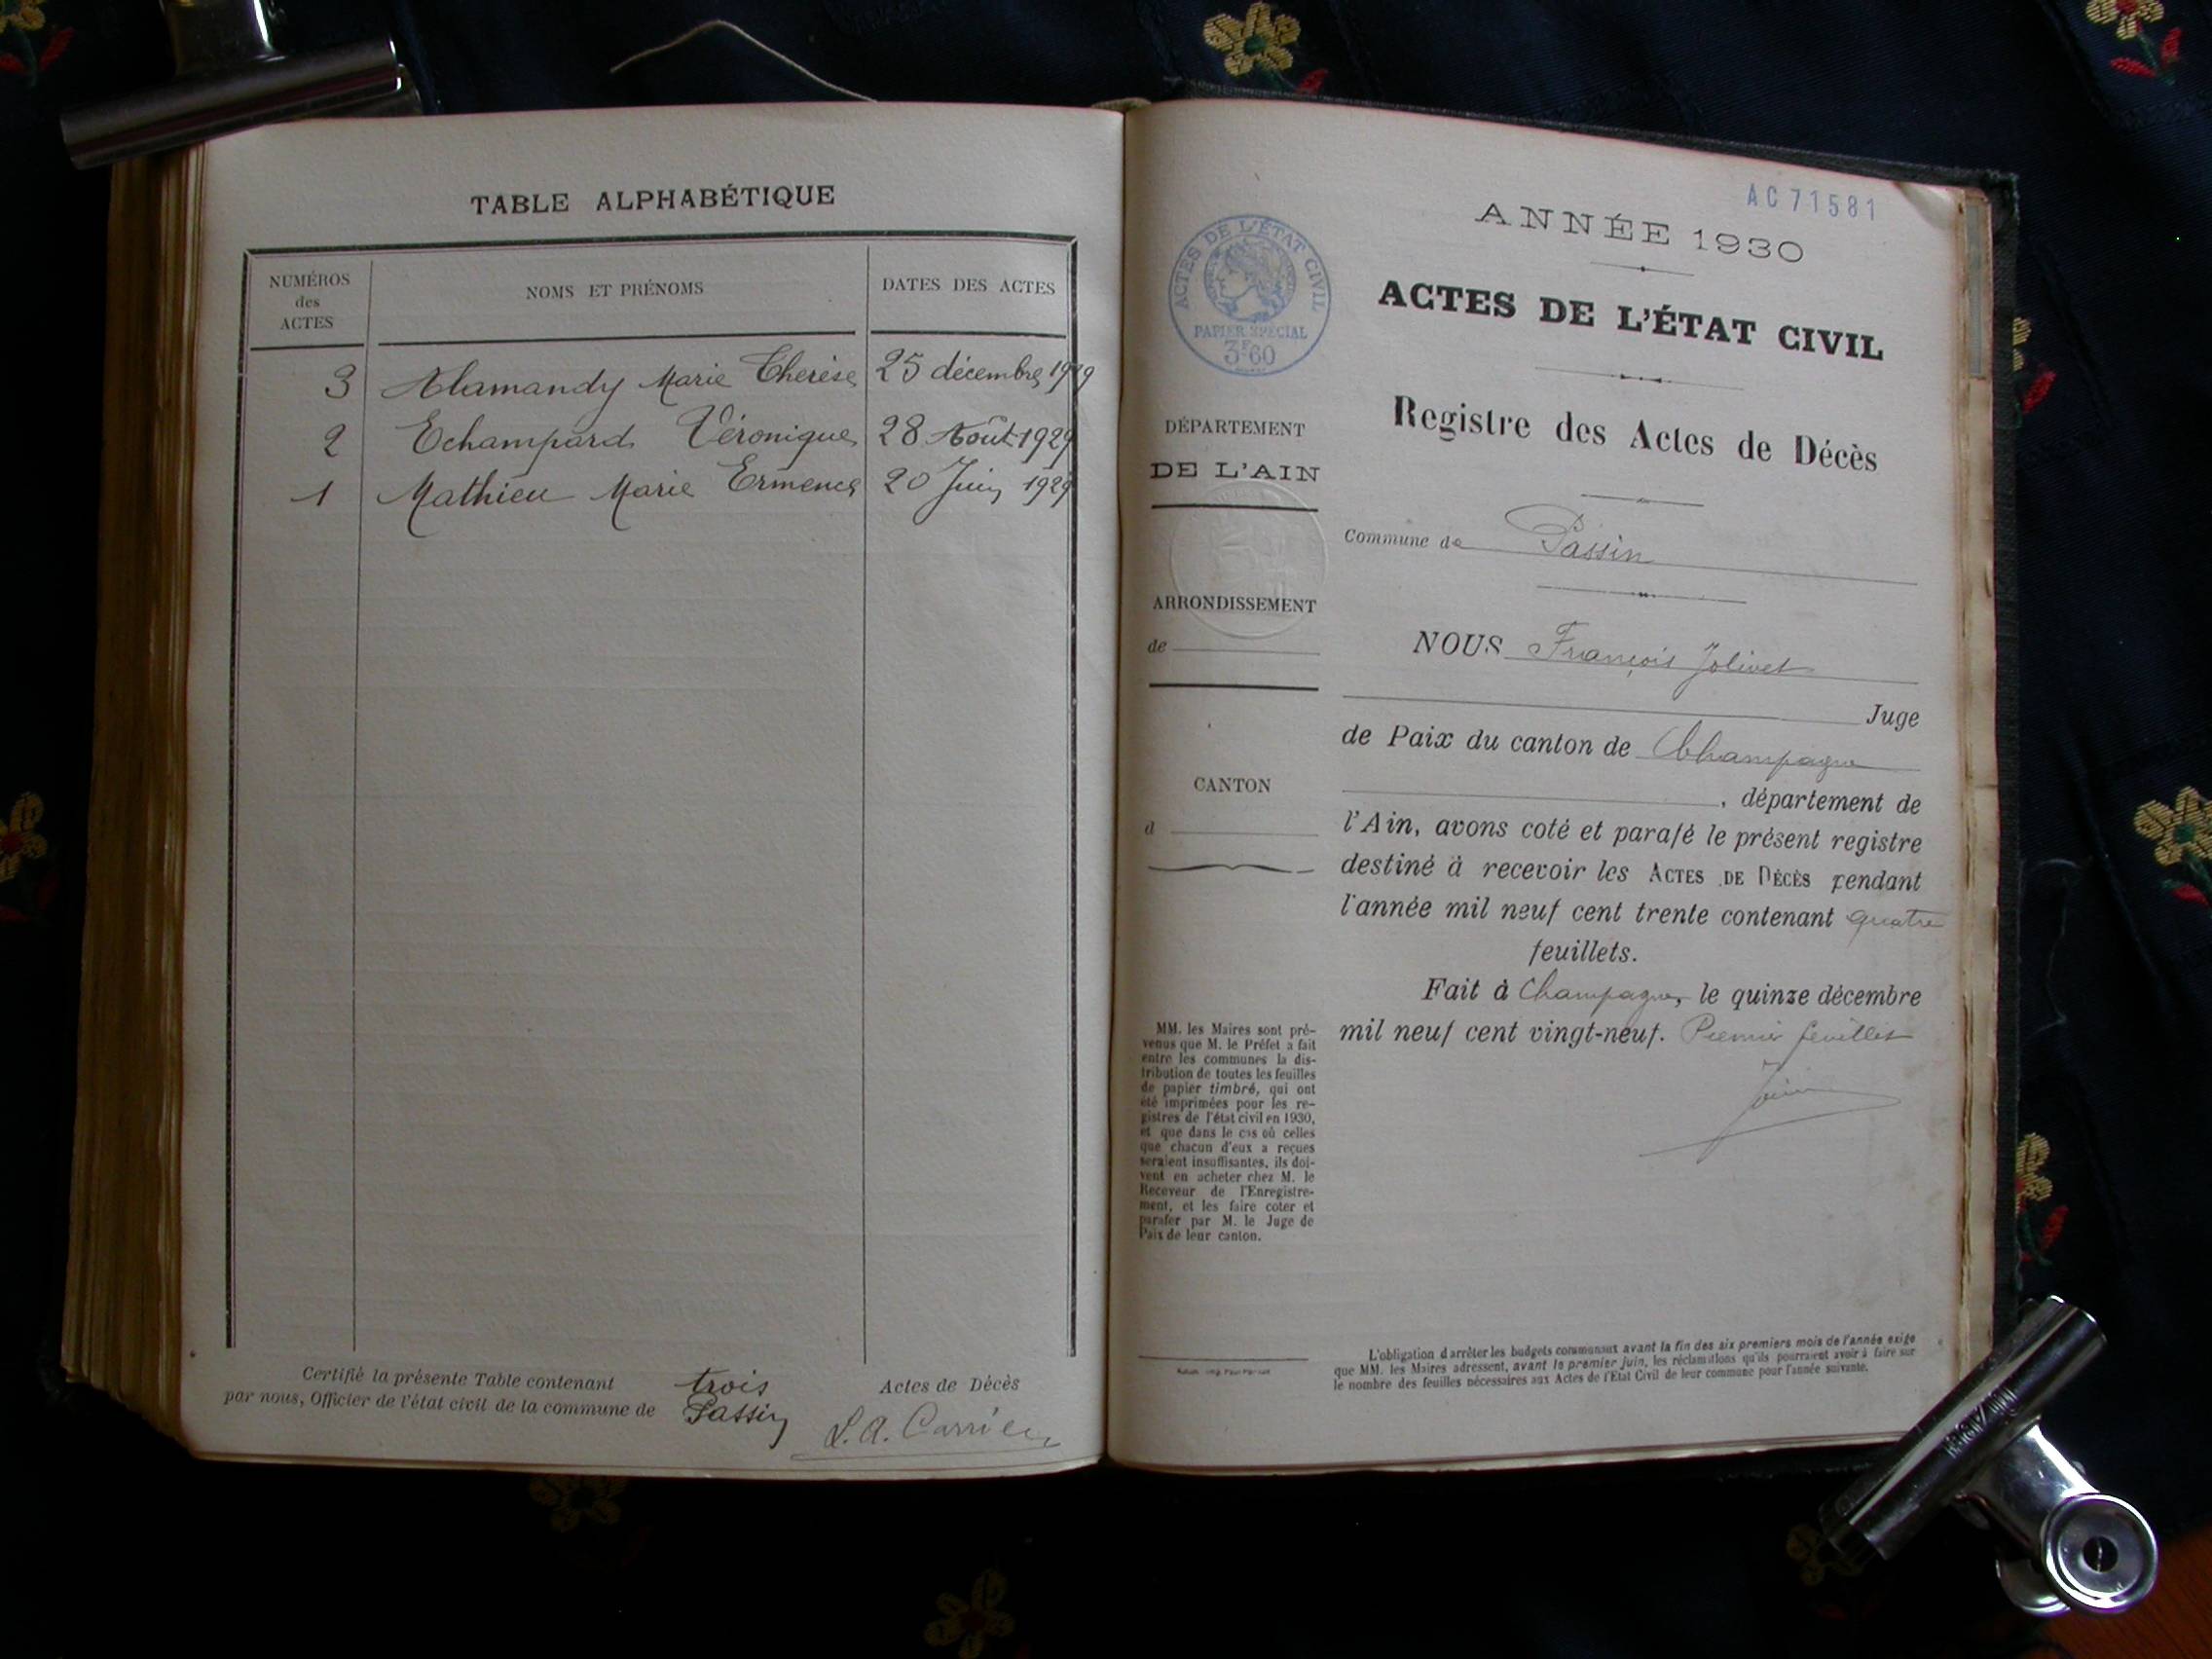 TABLE ALPHABÉTIQUE
NUMÉROS
des
ACTES
NOMS ET PRÉNOMS
DATES DES ACTES
3 Alamandy Marie Therèse 25 décembre 1929
2 Echampard Véronique 28 Août 1929
1 Mathieu Marie Ermence 20 Juin 1929
Certifié la présente Table contenant trois Actes de Décès
par nous, Officier de l'état civil de la commune de Passin
AC 71581
ACTES DE L'ÉTAT CIVIL
PAPIER SPÉCIAL
3F60
DÉPARTEMENT
DE L'AIN
ARRONDISSEMENT
de
CANTON
d
MM. les Maires sont pré-
venus que M. le Préfet a fait
entre les communes la dis-
tribution de toutes les feuilles
de papier timbré, qui ont
été imprimées pour les re-
gistres de l'état civil en 1930,
et que dans le cas où celles
que chacun d'eux a reçues
seraient insuffisantes, ils doi-
vent en acheter chez M. le
Receveur de l'Enregistre-
ment, et les faire coter et
parafer par M. le Juge de
Paix de leur canton.
ANNÉE 1930
ACTES DE L'ÉTAT CIVIL
Registre des Actes de Décès
Commune de Passin
NOUS François Jolivet
Juge
de Paix du canton de Champagne
, département de
l'Ain, avons coté et parafé le présent registre
destiné à recevoir les ACTES DE DÉCÈS pendant
l'année mil neuf cent trente contenant quatre
feuillets.
Fait à Champagne, le quinze décembre
mil neuf cent vingt-neuf. Premier feuillet
L'obligation d'arrêter les budgets communaux avant la fin des six premiers mois de l'année exige
que MM. les Maires adressent, avant le premier juin, les réclamations qu'ils pourraient avoir à faire sur
le nombre des feuilles nécessaires aux Actes de l'État Civil de leur commune pour l'année suivante.